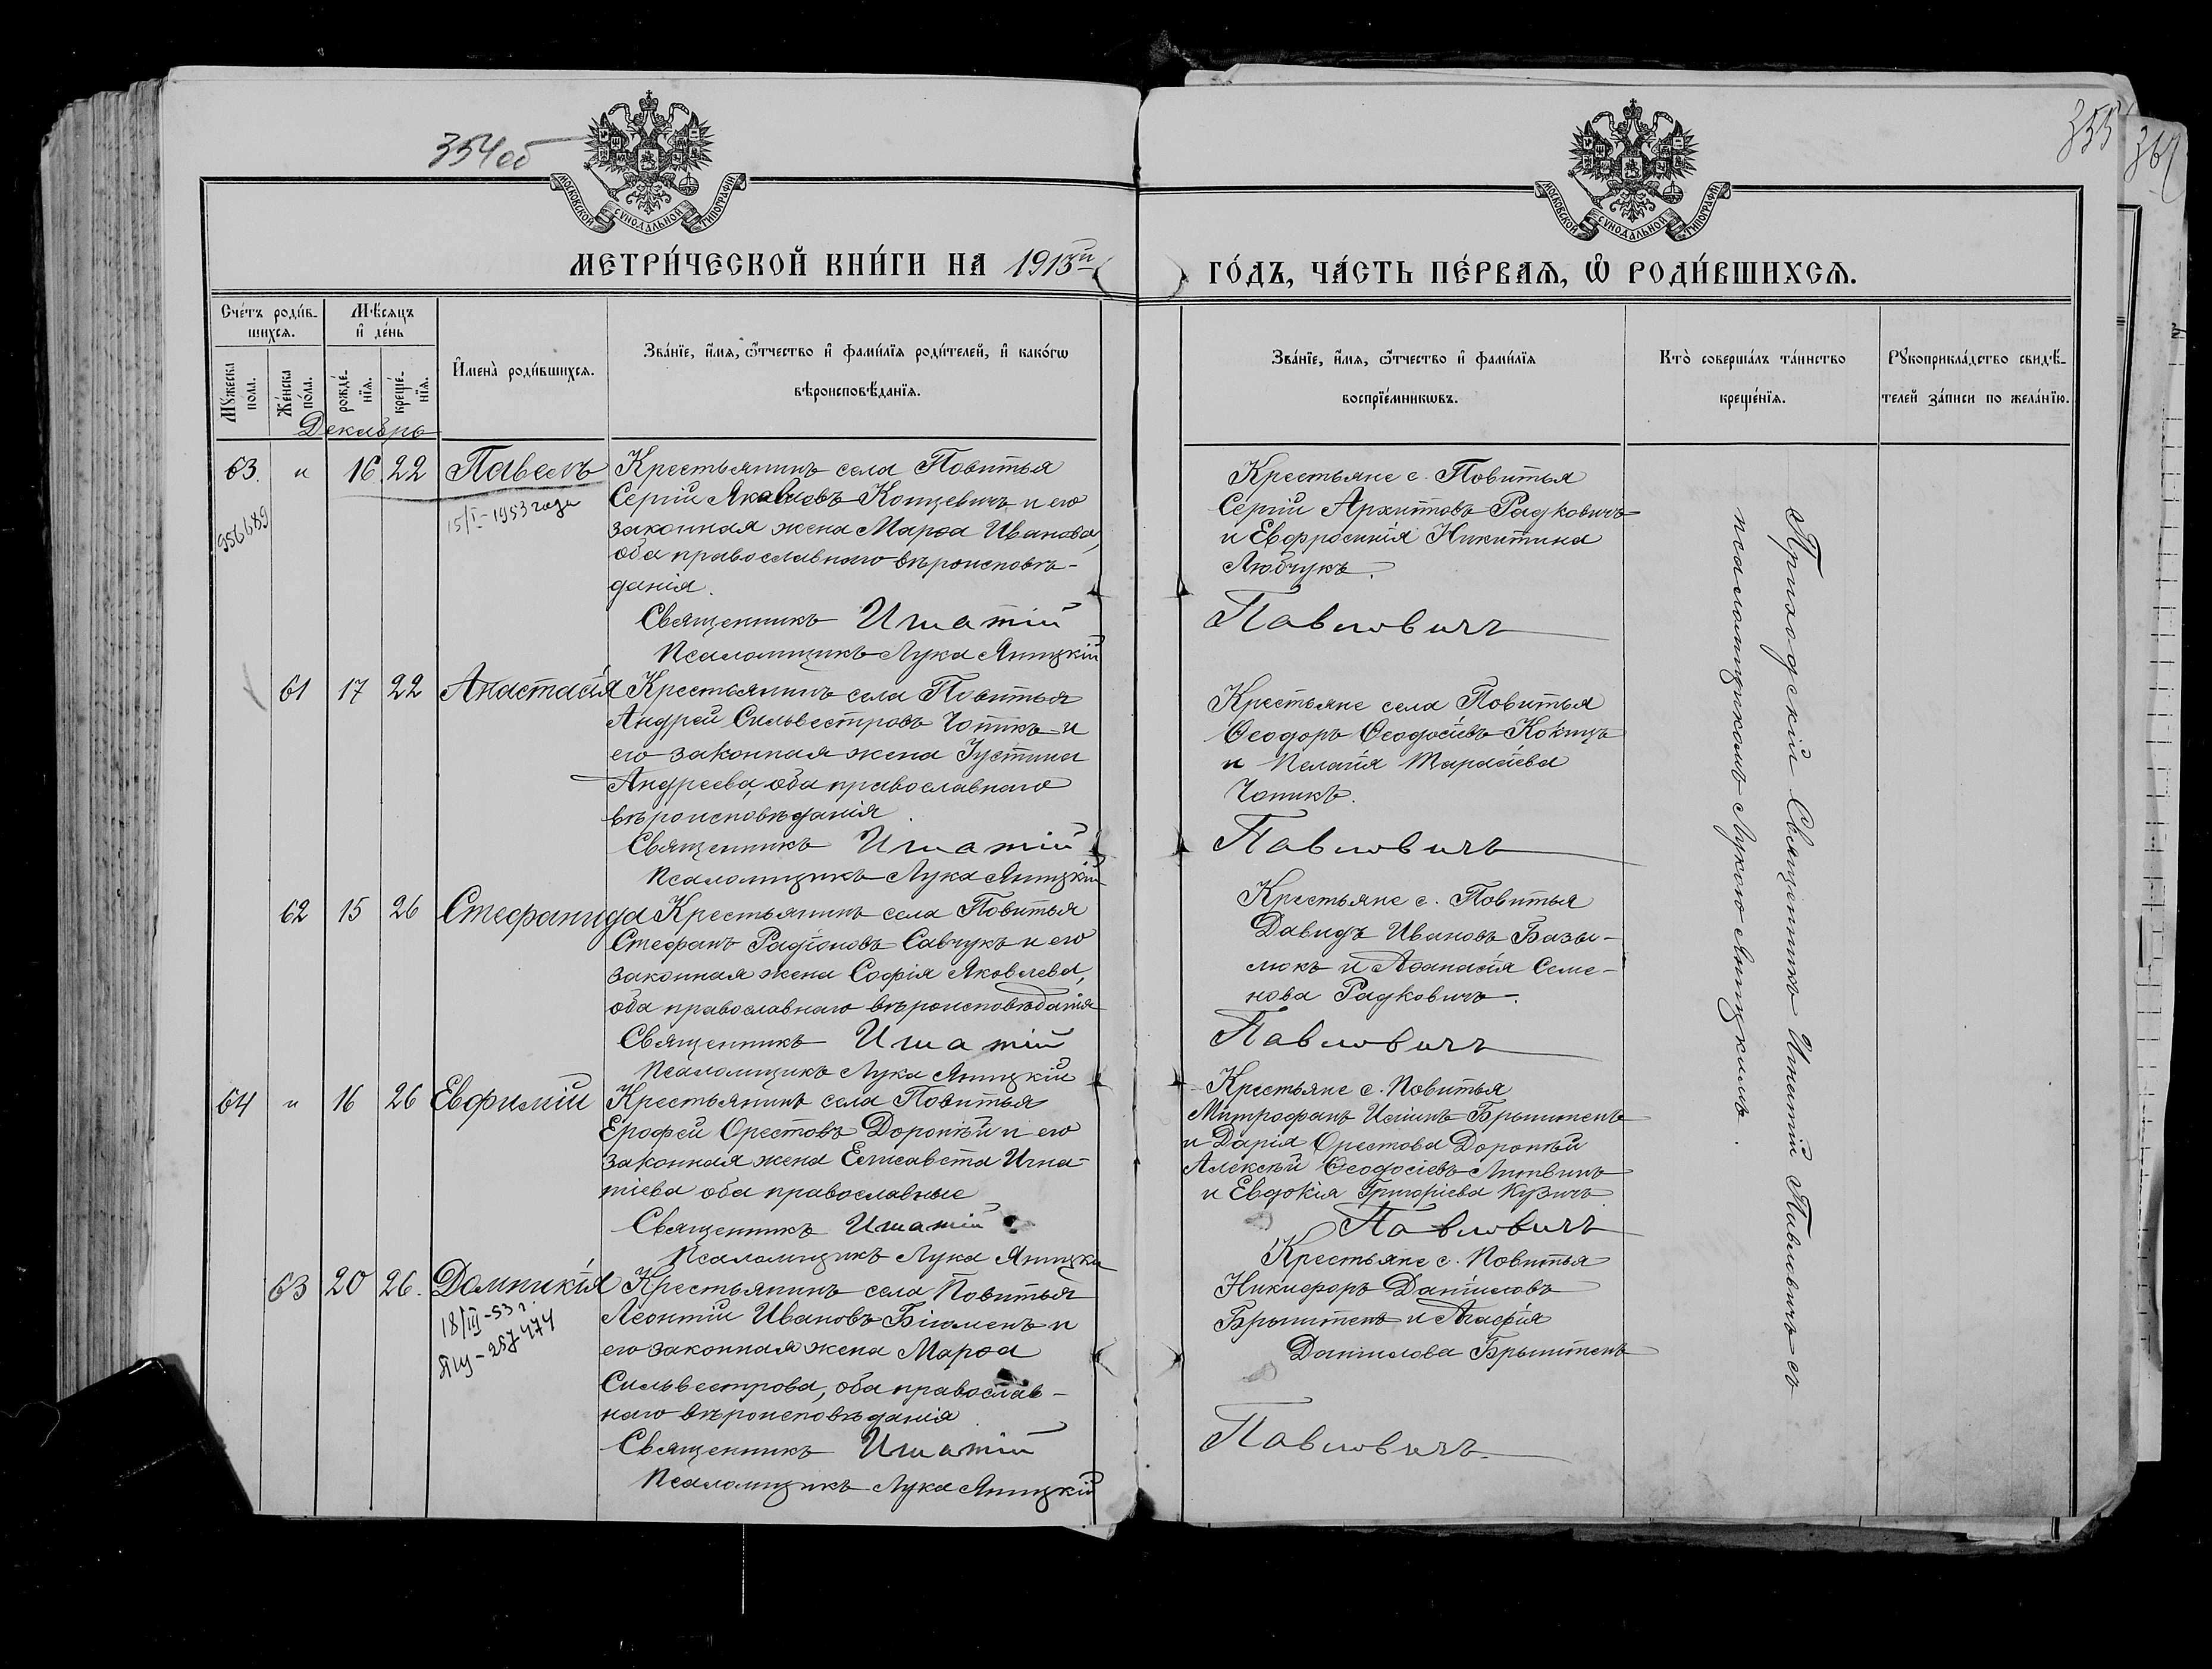 354об
355
МОСКОВСКОЙ СѴНОДАЛЬНОЙ ТИПОГРАФІИ
МОСКОВСКОЙ СѴНОДАЛЬНОЙ ТИПОГРАФІИ
МЕТРИ́ЧЕСКОЙ КНИ́ГИ НА 1913й
ГО́ДЪ, ЧА́СТЬ ПЕ́РВАѦ, Ѽ РОДИ́ВШИХСѦ.
Сче́тъ роди́в-
шихсѧ.
Мꙋжеска пола.
Же́нска по́ла.
Мѣ́сѧцъ
и҆ де́нь
рожде́-
нїѧ.
креще́-
нїѧ.
И҆мена̀ роди́вшихсѧ.
Зва́нїе, и҆́мѧ, ѻ҆́тчество и҆ фами́лїѧ роди́телей, и҆ како́гѡ
вѣроисповѣ́данїѧ.
Зва́нїе, и҆́мѧ, ѻ҆́тчество и҆ фами́лїѧ
воспрїе́мникѡвъ.
Кто̀ соверша́лъ та́инство
креще́нїѧ.
Рꙋкоприкла́дство свидѣ́-
телей за́писи по жела́нїю.
Декабрь
63. " 16 22 Павелъ
956689
15/I-1953 года
Крестьянинъ села Повитья
Сергій Яковлевъ Концевичъ и его
законная жена Марѳа Иванова,
оба православнаго вѣроисповѣ-
данія.
Священникъ Игнатій
Псаломщикъ Лука Яницкій
Крестьяне с. Повитья
Сергій Архиповъ Радковичъ
и Евфросинія Никитина
Любчукъ.
Павловичъ
61 17 22 Анастасія
Крестьянинъ села Повитья
Андрей Сильвестровъ Чопикъ и
его законная жена Іустина
Андреева, оба православнаго
вѣроисповѣданія.
Священникъ Игнатій
Псаломщикъ Лука Яницкій
Крестьяне села Повитья
Ѳеодоръ Ѳеодосіевъ
и Пелагія Тарасіева
Чопикъ.
Павловичъ
62 15 26 Стефанида
Крестьянинъ села Повитья
Стефанъ Радіоновъ Савчукъ и его
законная жена Софія Яковлева,
оба православнаго вѣроисповѣданія
Священникъ Игнатій
Псаломщикъ Лука Яницкій
Крестьяне с. Повитья
Давидъ Ивановъ Базы-
люкъ и Аѳанасія Семе-
нова Радковичъ.
Павловичъ
64 " 16 26 Евфимій
Крестьянинъ села Повитья
Ерофей Орестовъ Доропѣй и его
законная жена Елисавета Игна-
тіева оба православные
Священникъ Игнатій
Псаломщикъ Лука Яницкій
Крестьяне с. Повитья
Митрофанъ Брынтень
и Дарія Орестова Доропѣй
Алексѣй Ѳеодосіевъ Литвинъ
и Евдокія Григоріева Кузичъ
Павловичъ
63 20 26. Домникія
18/III-53 г.
257474
Крестьянинъ села Повитья
Леонтій Ивановъ и
его законная жена Марѳа
Сильвестрова, оба православ-
наго вѣроисповѣданія.
Священникъ Игнатій
Псаломщикъ Лука Яницкій
Крестьяне с. Повитья
Никифоръ Даниловъ
Брынтень и Агафія
Данилова Брынтень
Павловичъ.
Приходскій Священникъ Игнатій Павловичъ съ
псаломщикомъ Лукою Яницкимъ.